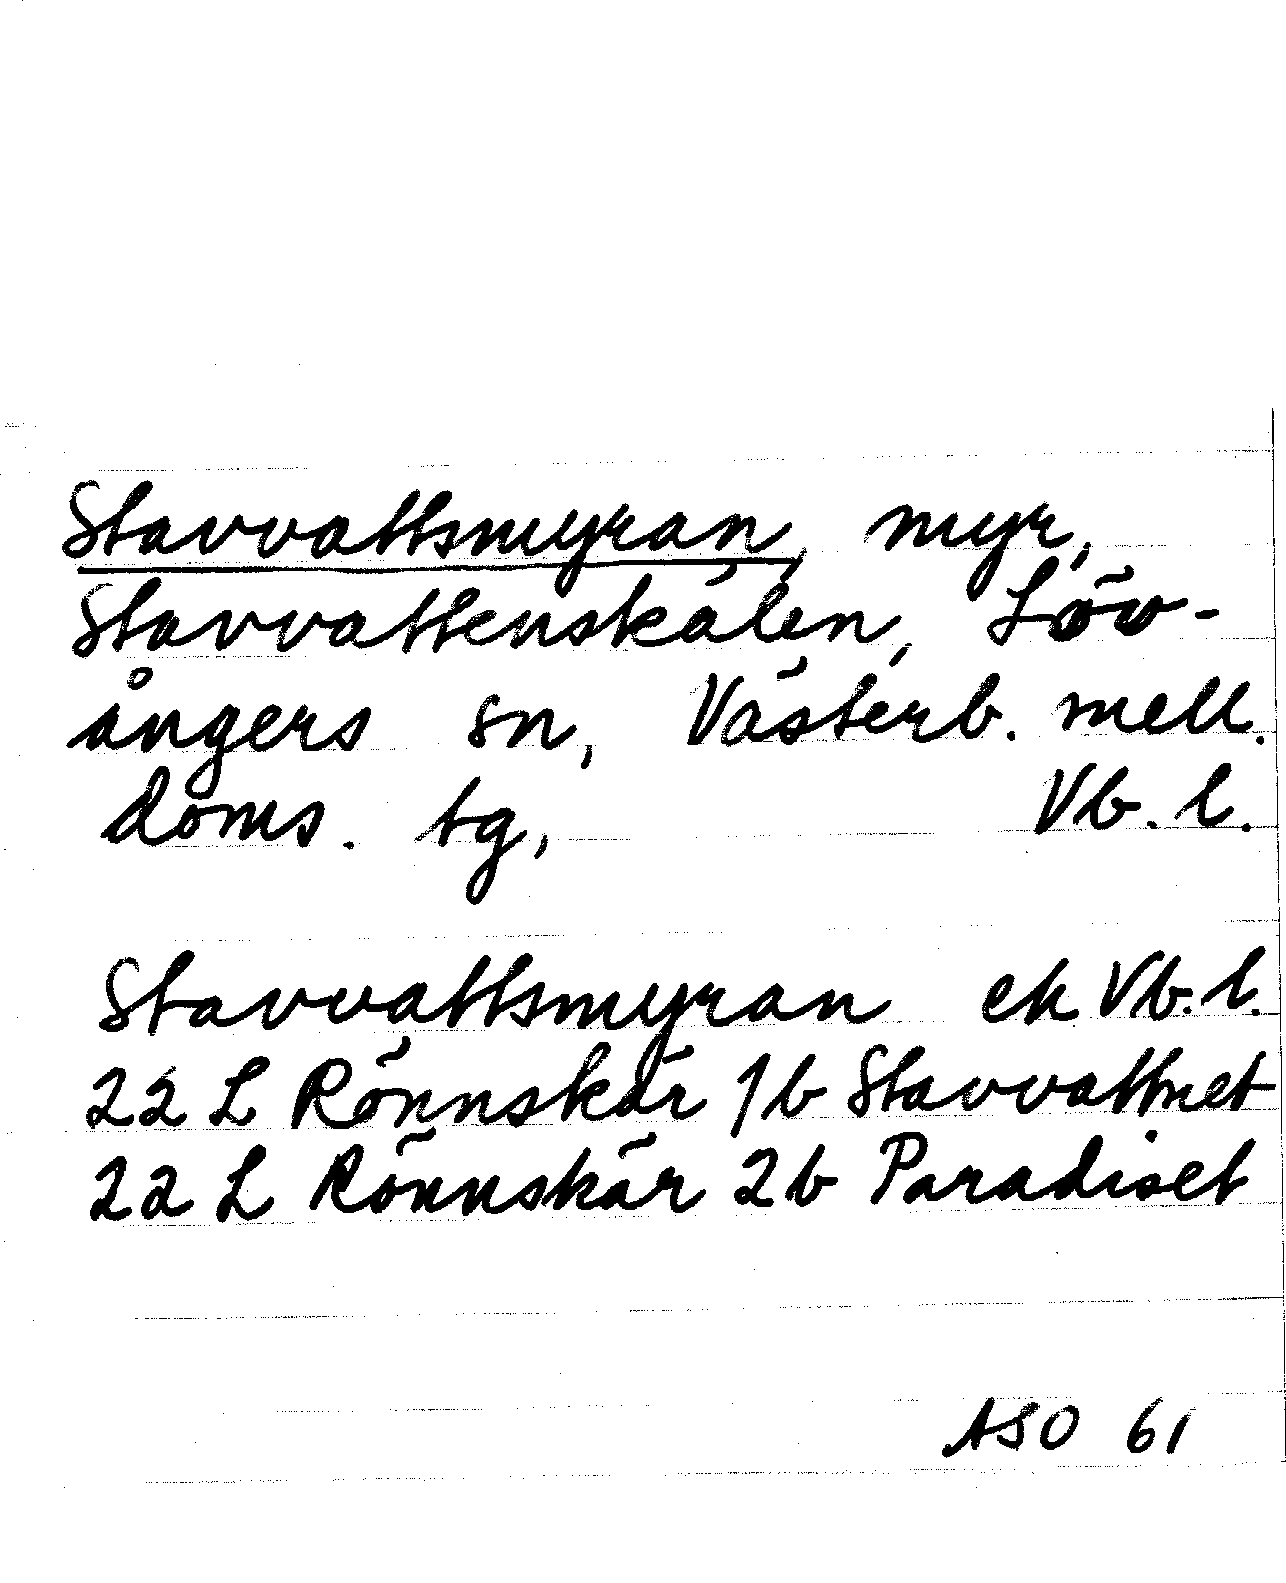 Stavvattsmyran, myr,
Stavvattenskälen, Löv-
ångers sn, Västerb. mell.
doms. tg, Vb. l.
Stavvattsmyran ek Vb. l.
22 L Rönnskär 1b Stavvattnet
22 L Rönnskär 2b Paradiset
ASO 61